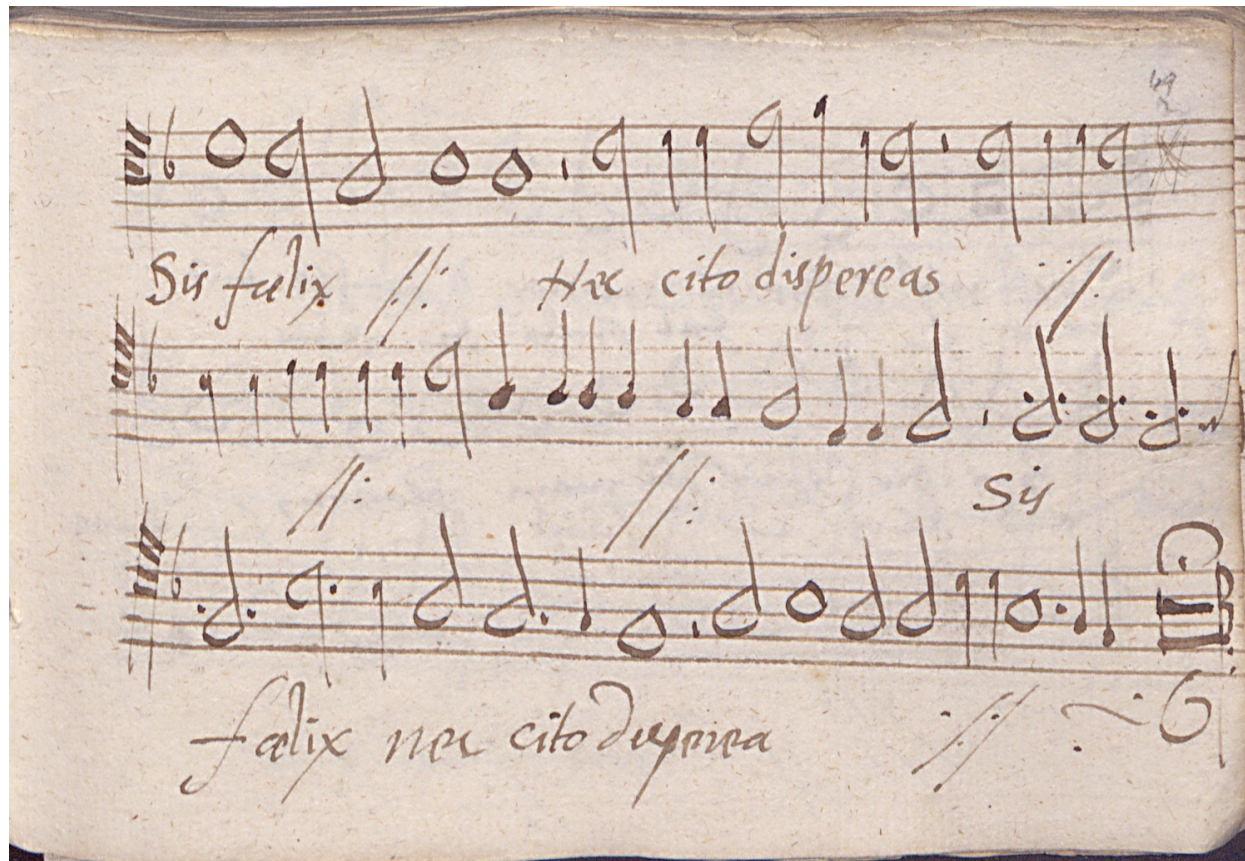 49
Sis fœlix //: Nec cito dispereas ://:
//: //: Sis
fœlix nec cito disperea ://: